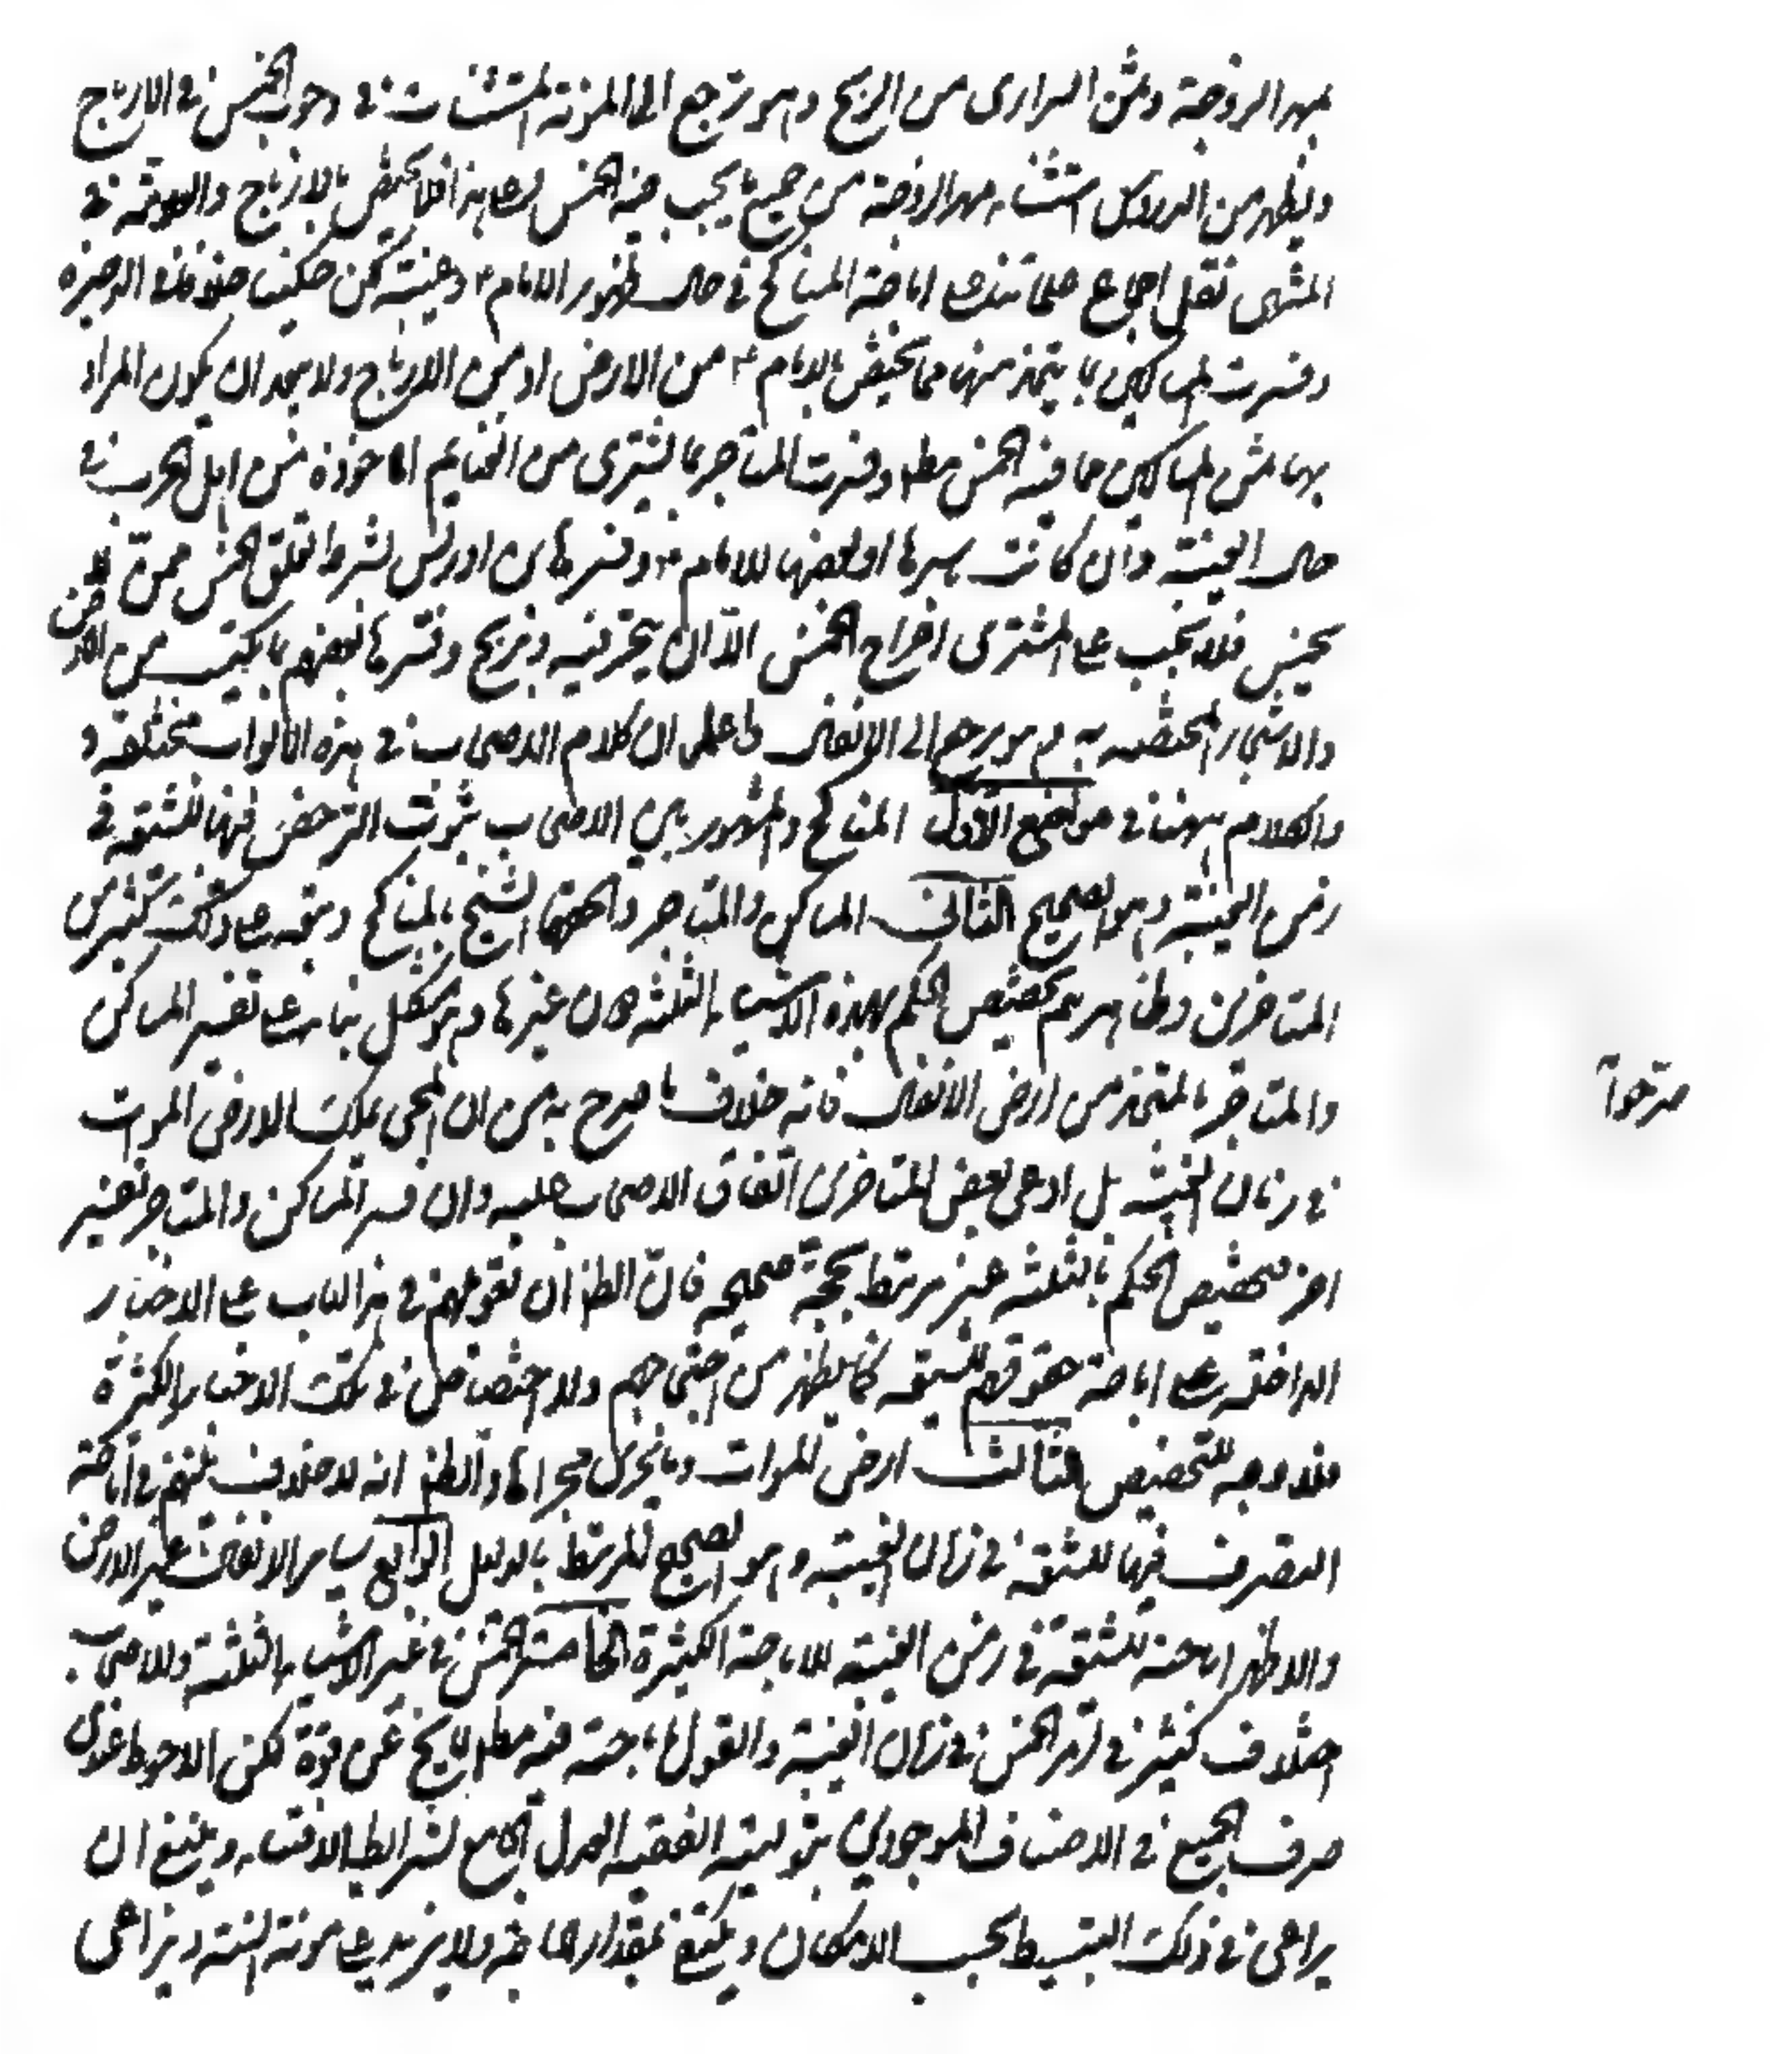 بمهر الزوجة وثمن السراري من الربح وهو يرجع الى المؤنة المستثناة في وجوب الخمس في الارباح
ويظهر من الدروس استثناء مهر الزوجة من جميع ما يجب فيه الخمس وعلى هذا فلا يختص بالارباح والعلامة في
المنتهى نقل اجماع علمائنا على اباحة المناكح في حال ظهور الامام ع وغيبته لكن حكينا خلافا لابي
وفسرت المساكن بما يتخذ منها مما يختص بالامام ع من الارض او من الارباح ولا يبعد ان يكون المراد
بها ثمن المساكن مما فيه الخمس مط وفسرت المتاجر بما يشترى من الغنايم الماخوذة من اهل الحرب في
حال الغيبة وان كانت باسرها او بعضها للامام ع وفسرها ابن ادريس بشراء متعلق الخمس ممن لا
يخمس فلا يجب على المشتري اخراج الخمس الا ان يتجر فيه ويربح وفسرها بعضهم بما يكتسب من الارض
والاشجار المختصة به وهو يرجع الى الانفال واعلم ان كلام الاصحاب في هذه الابواب مختلفة و
والكلام ههنا في مواضع الاول المناكح والمشهور بين الاصحاب ثبوت الترخص فيها للشيعة في
زمن الغيبة وهو الصحيح الثاني المساكن والمتاجر والحقهما الشيخ بالمناكح وتبعه على ذلك كثير من
المتاخرين وظاهرهم تخصيص الحكم بهذه الاشياء الثلثة دون غيرها وهو مشكل بناء على تفسير المساكن
والمتاجر بالمتخذ من ارض الانفال فانه خلاف ما صرح به من ان المحيى يملك الارض الموات
صرحوا
في زمان الغيبة بل ادعى بعض المتاخرين اتفاق الاصحاب عليه وان فسر المساكن والمتاجر بتفسير
اخر فتخصيص الحكم بالثلثة غير مرتبط بحجة صحيحه فان الظ ان تعويلهم في هذا الباب على الاخبار
الدالة على اباحة حقوقهم لشيعته كما يظهر من احتجاجهم ولا اختصاص في تلك الاخبار الكثيرة
فلا وجه للتخصيص الثالث ارض الموات وما يجري مجراها والظ انه لا خلاف بينهم في اباحة
التصرف فيها للشيعة في زمان الغيبة وهو الصحيح المرتبط بالدليل الرابع ساير الانفال غير الارض
والاظهر اباحته للشيعة في زمن الغيبة للاباحة الكثيرة الخامس الخمس في غير الاشياء الثلثة وللاصحاب
اختلاف كثير في امر الخمس في زمان الغيبة والقول باباحته فيه مط لا يخ عن قوة لكن الاحوط عندي
صرف الجميع في الاصناف الموجودين بتولية الفقيه العدل الجامع لشرائط الافتاء وينبغي ان
يراعى في ذلك البسط بحسب الامكان ويكتفي بمقدار الحاجة ولا يزيد على مؤنة السنة ويراعى